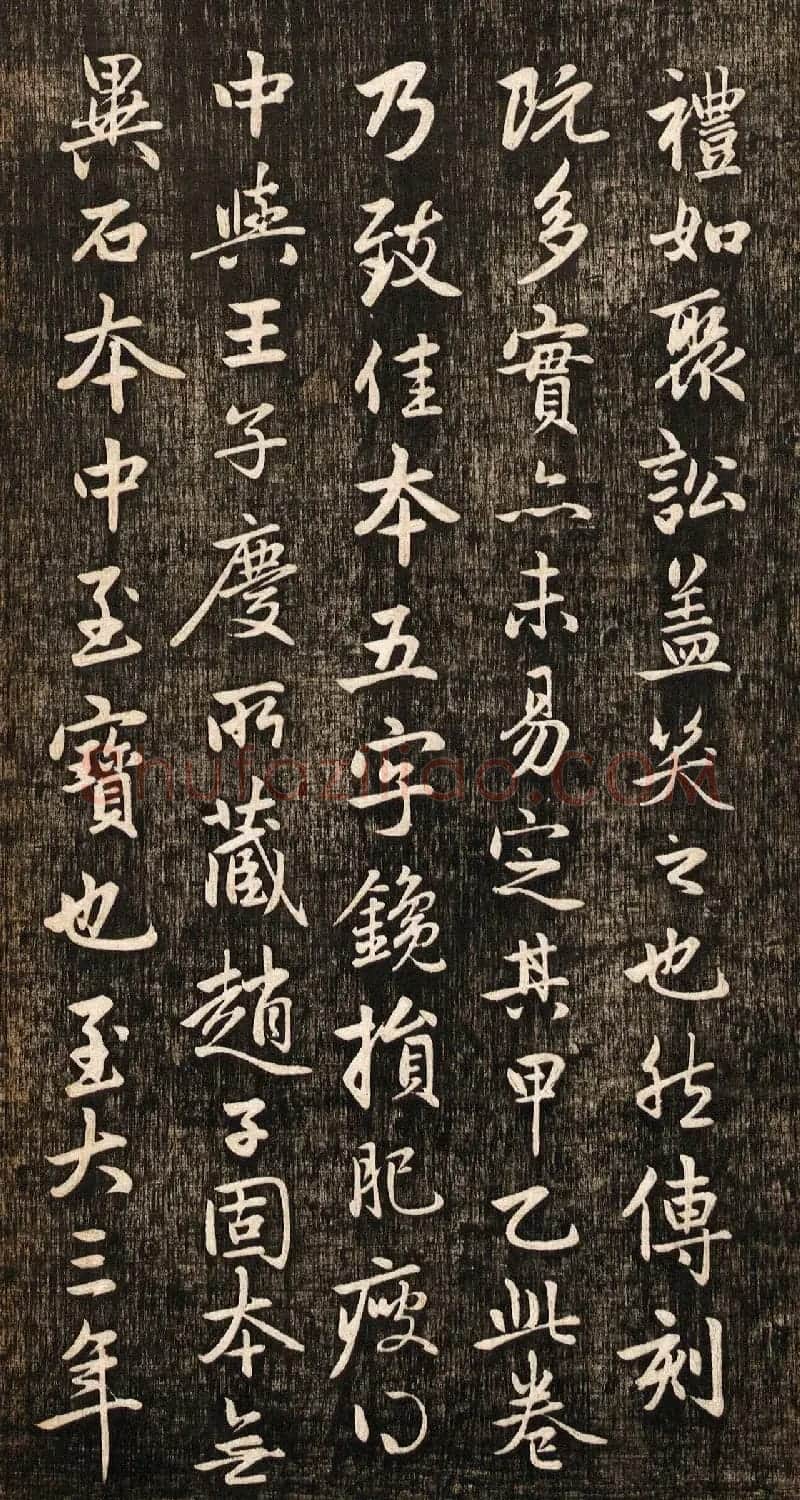 禮如聚訟蓋笑之也然傳刻
既多實亦未易定其甲乙此卷
乃致佳本五字鑱損肥瘦得
中與王子慶所藏趙子固本無
異石本中至寶也至大三年
shufaziliao.COM